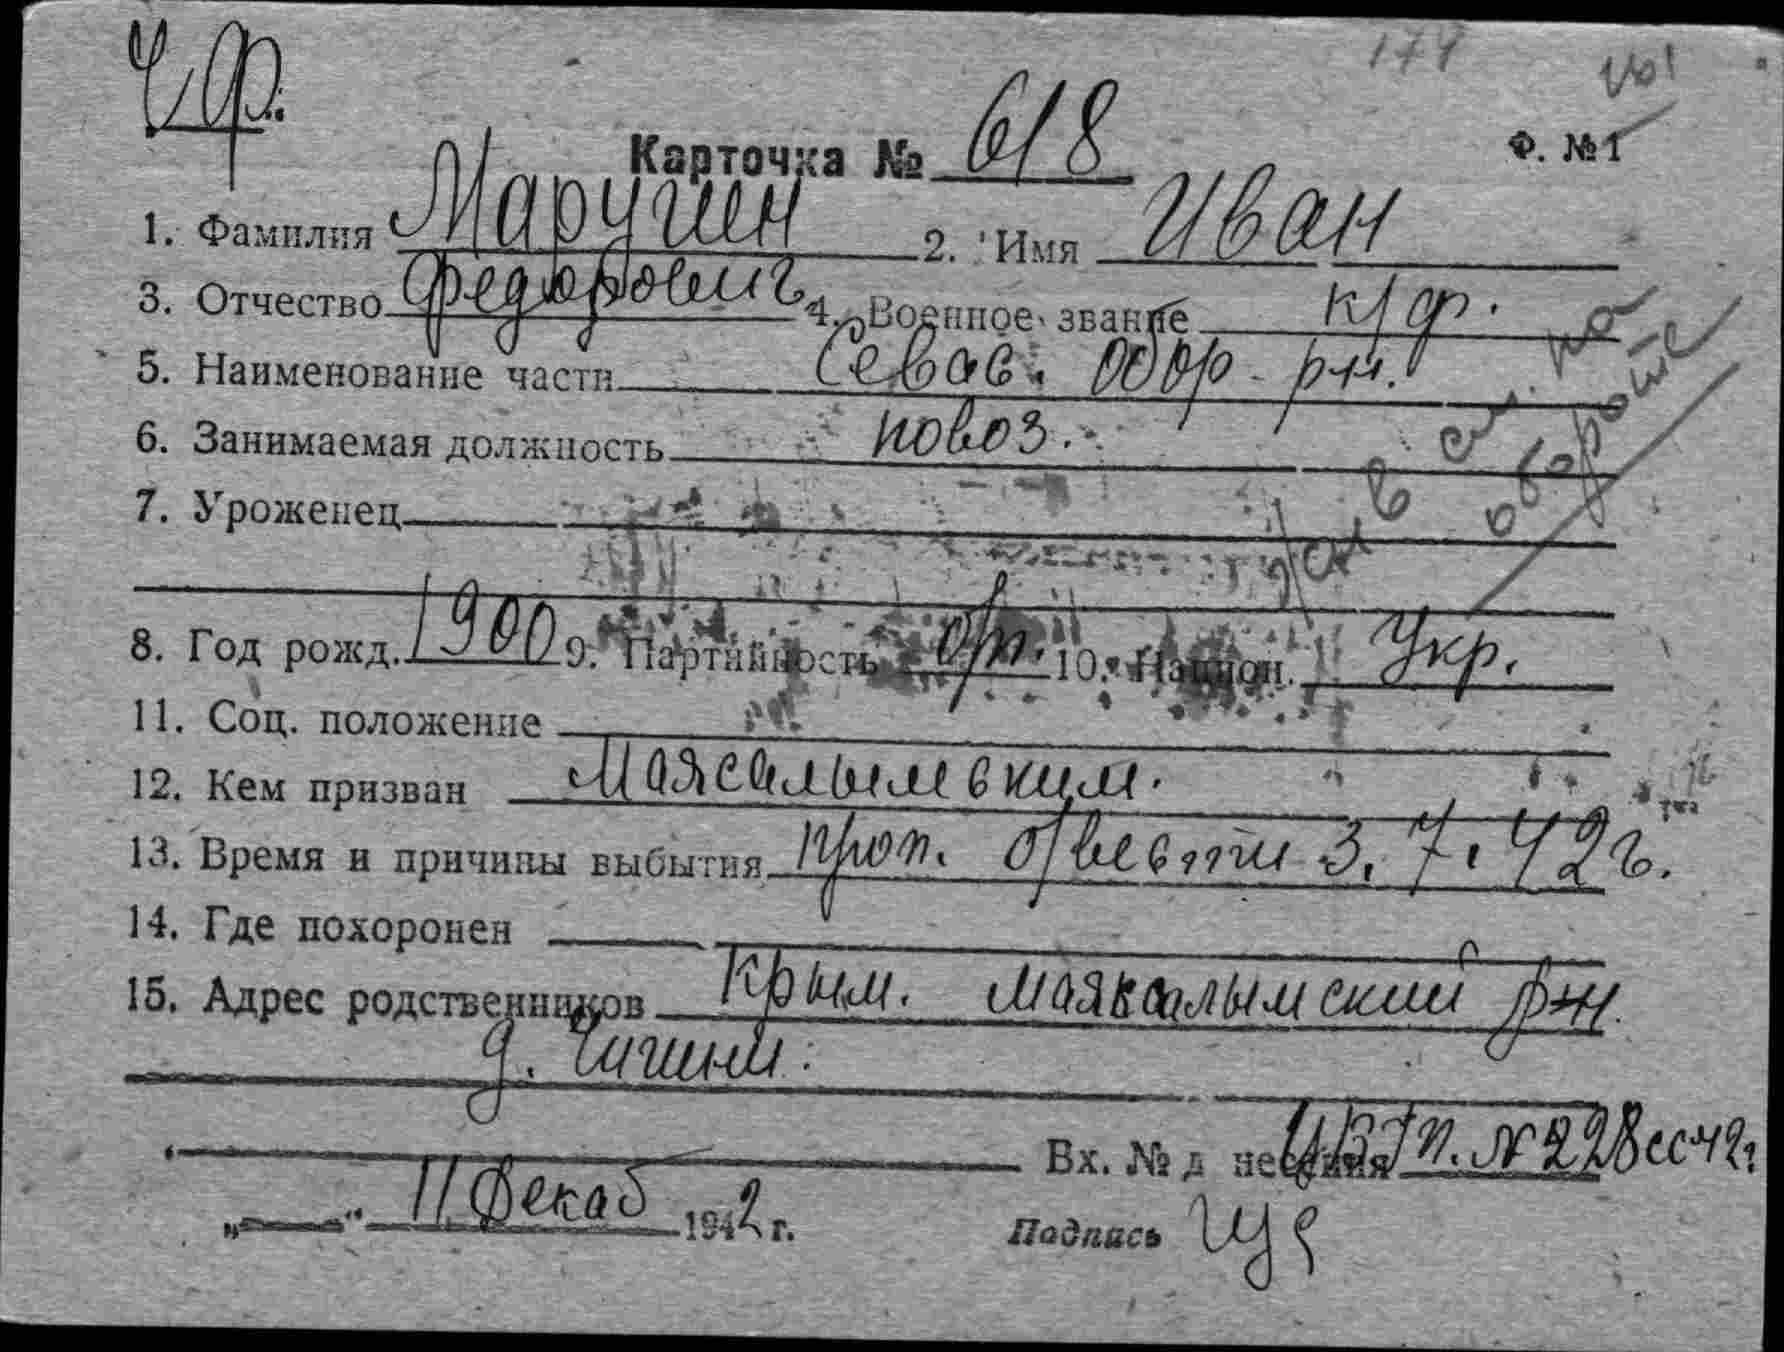 Ч.Ф.
174
Карточка № 618
Ф. №1
1. Фамилия Маругин 2. Имя Иван
3. Отчество Федорович 4. Военное звание к/ф.
5. Наименование части Севас. обор. р-н.
6. Занимаемая должность повоз.
7. Уроженец
см. на обороте
8. Год рожд. 1900 9. Партийность б/п. 10. Национ. Укр.
11. Соц. положение
12. Кем призван Маяксалымским.
13. Время и причины выбытия проп. б/вести 3.7.42г.
14. Где похоронен
15. Адрес родственников Крым. Маяксалымский р-н.
д. Чигини.
Вх. № д несения п. № 228сс 42г
„ “ 11 Декаб 1942 г. Подпись